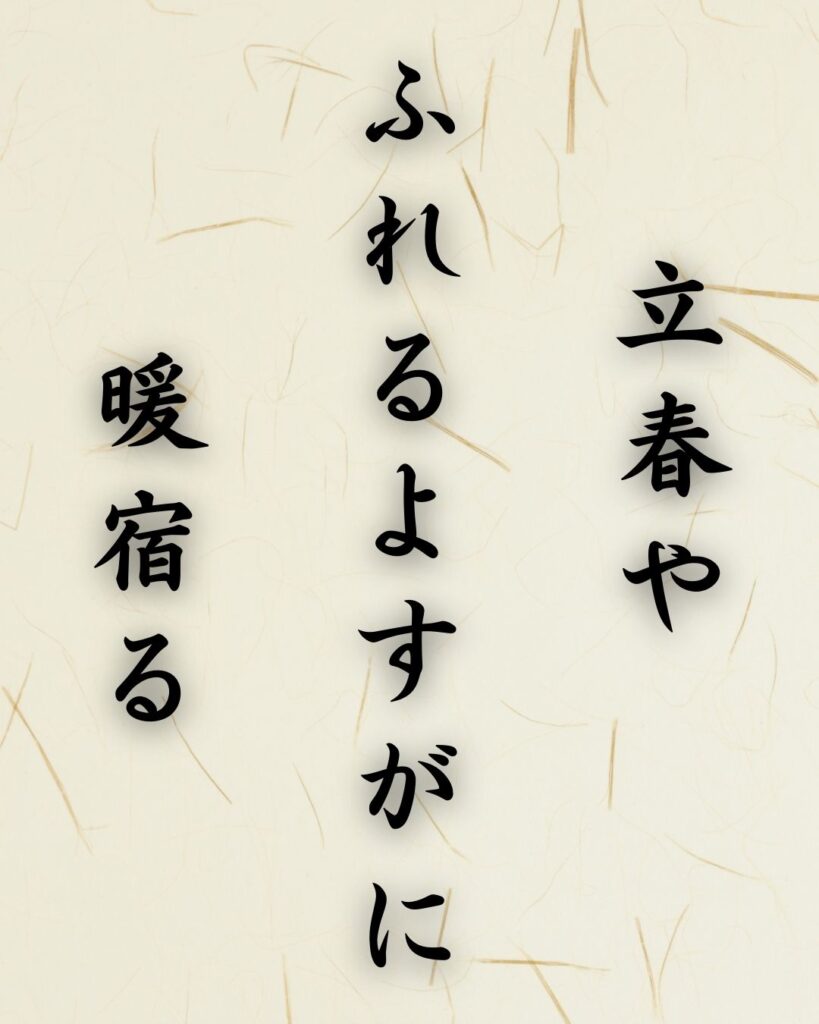 立春や
ふれるよすがに
暖宿る